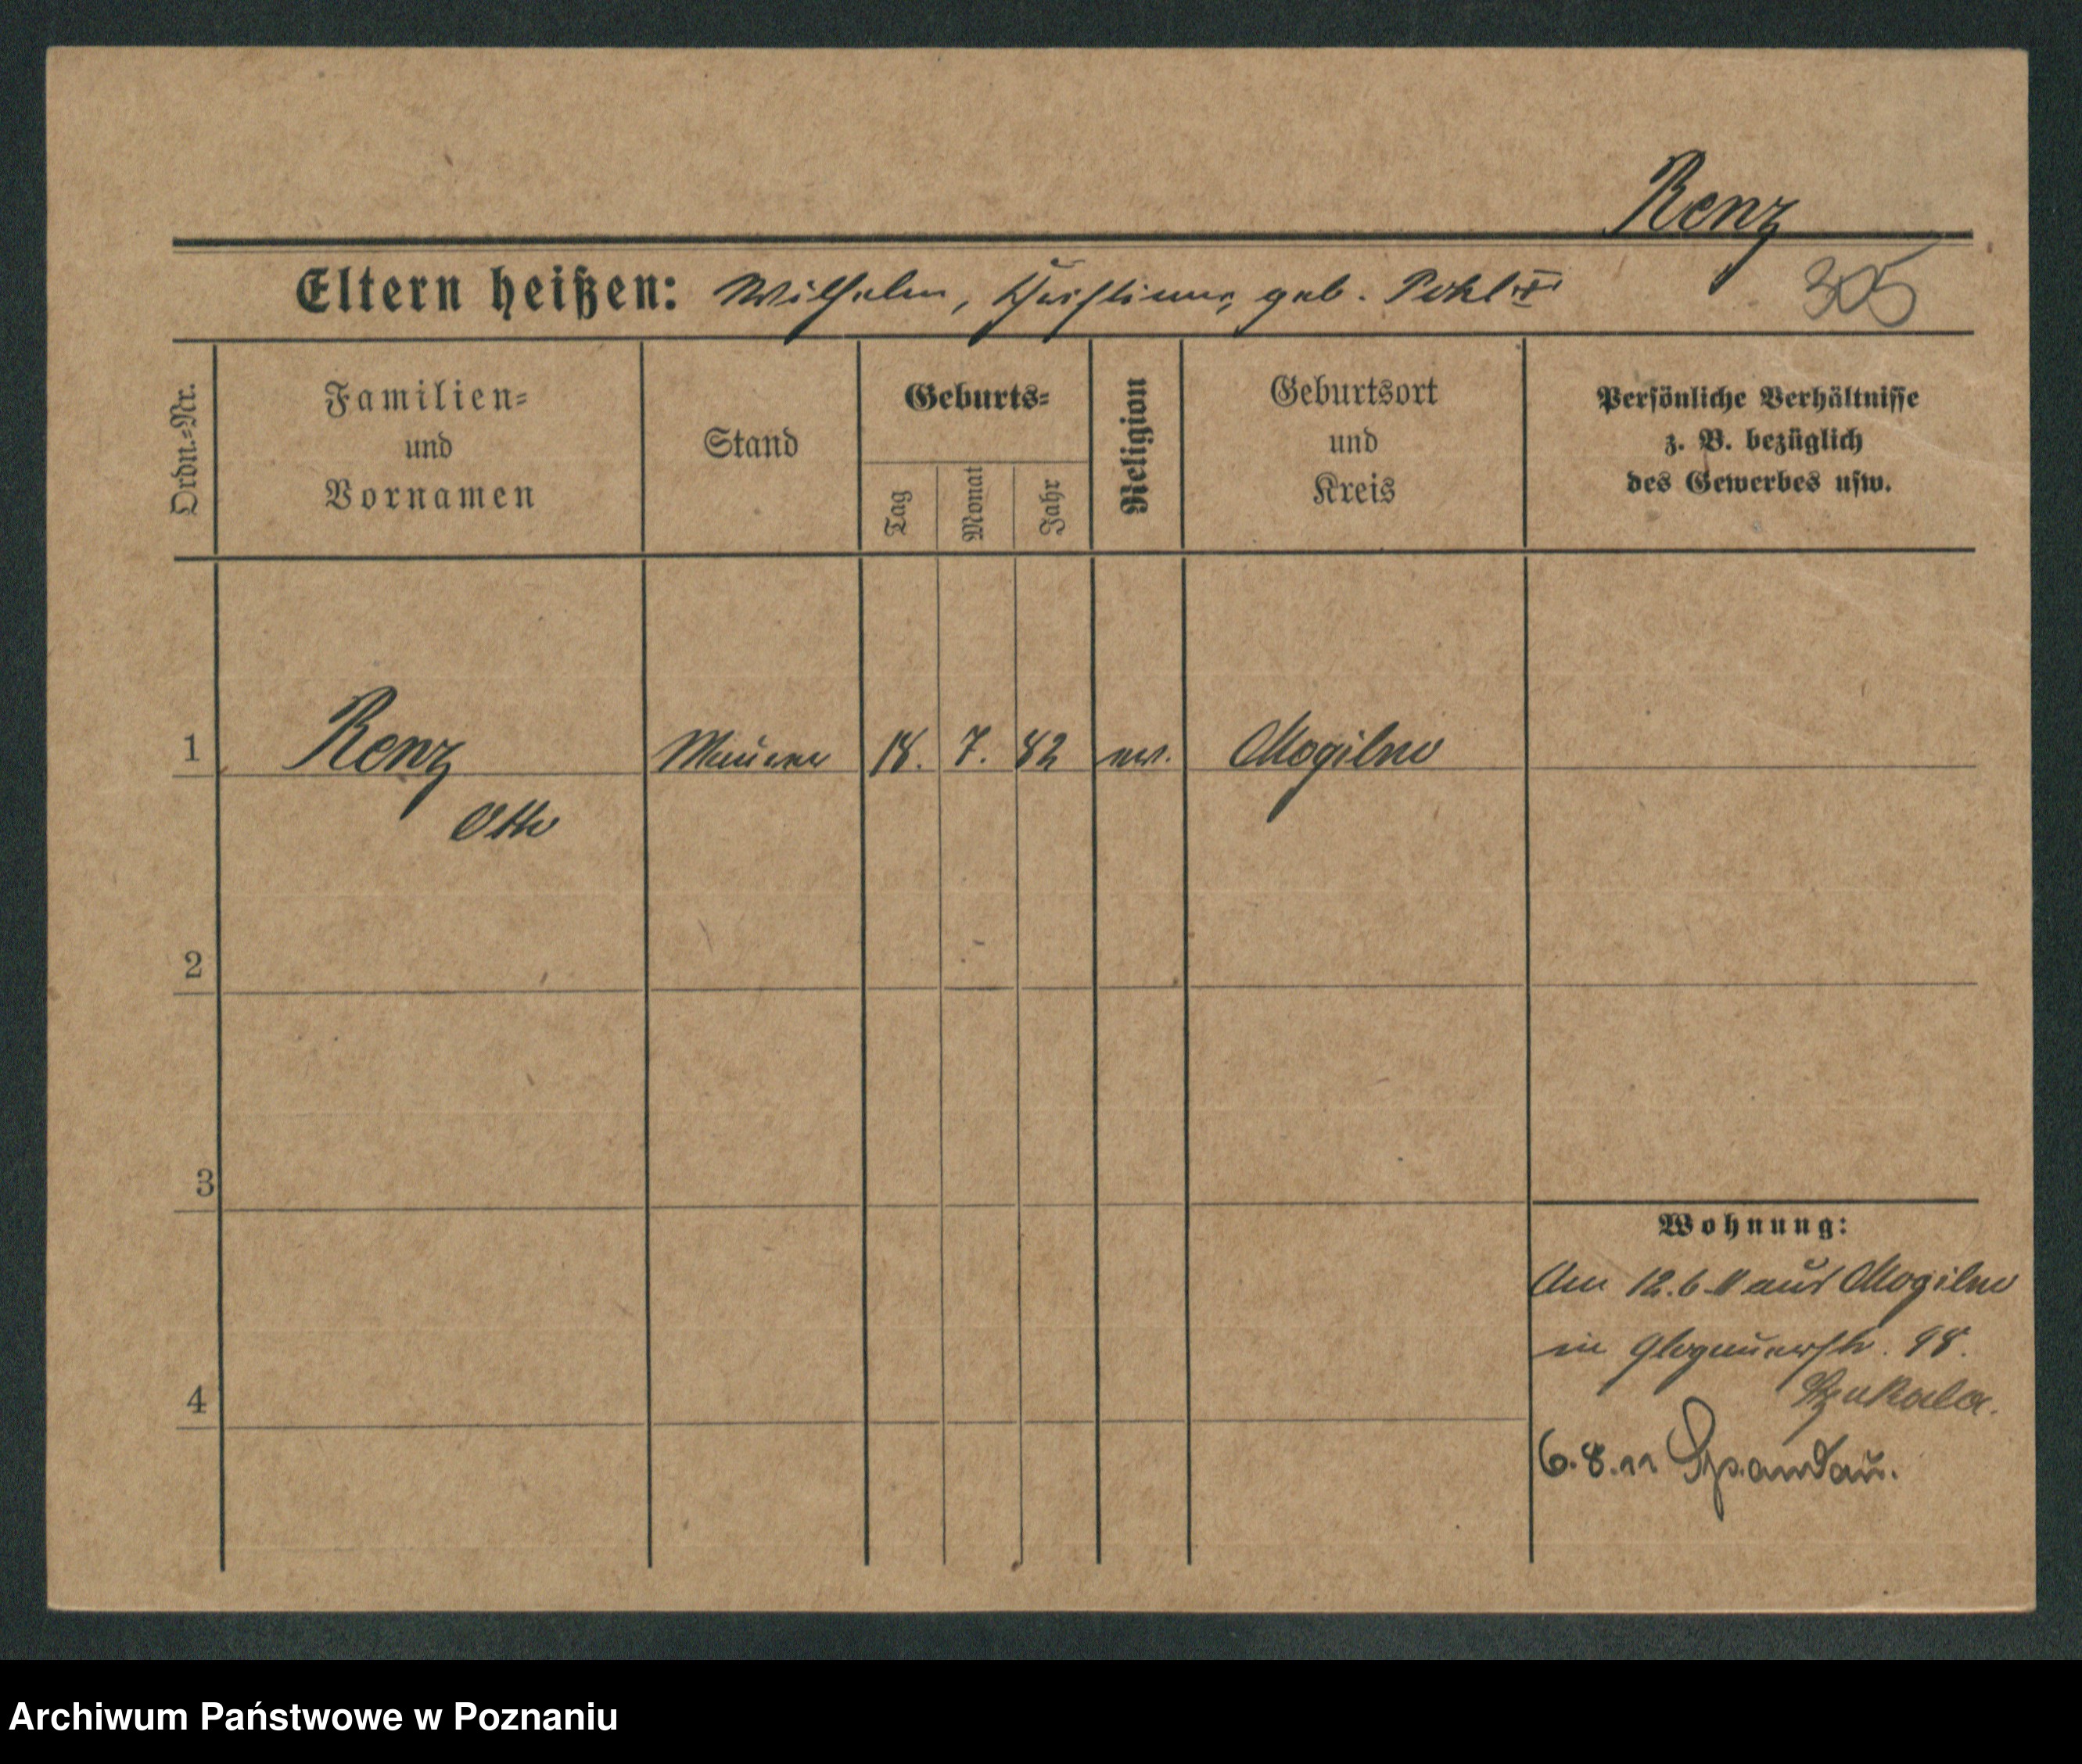 Renz
Eltern heißen: Wilhelm, Christine, geb. Pohl
305
Ordn.-Nr.
Familien-
und
Vornamen
Stand
Geburts-
Tag
Monat
Jahr
Religion
Geburtsort
und
Kreis
Persönliche Verhältnisse
z. B. bezüglich
des Gewerbes usw.
1 Renz Maurer 18. 7. 82 ev. Mogilno
Otto
2
3
4
Wohnung:
Am 12.6.11 aus Mogilno
in Glogauerstr. 98.
6.8.11 Spandau.
Archiwum Państwowe w Poznaniu